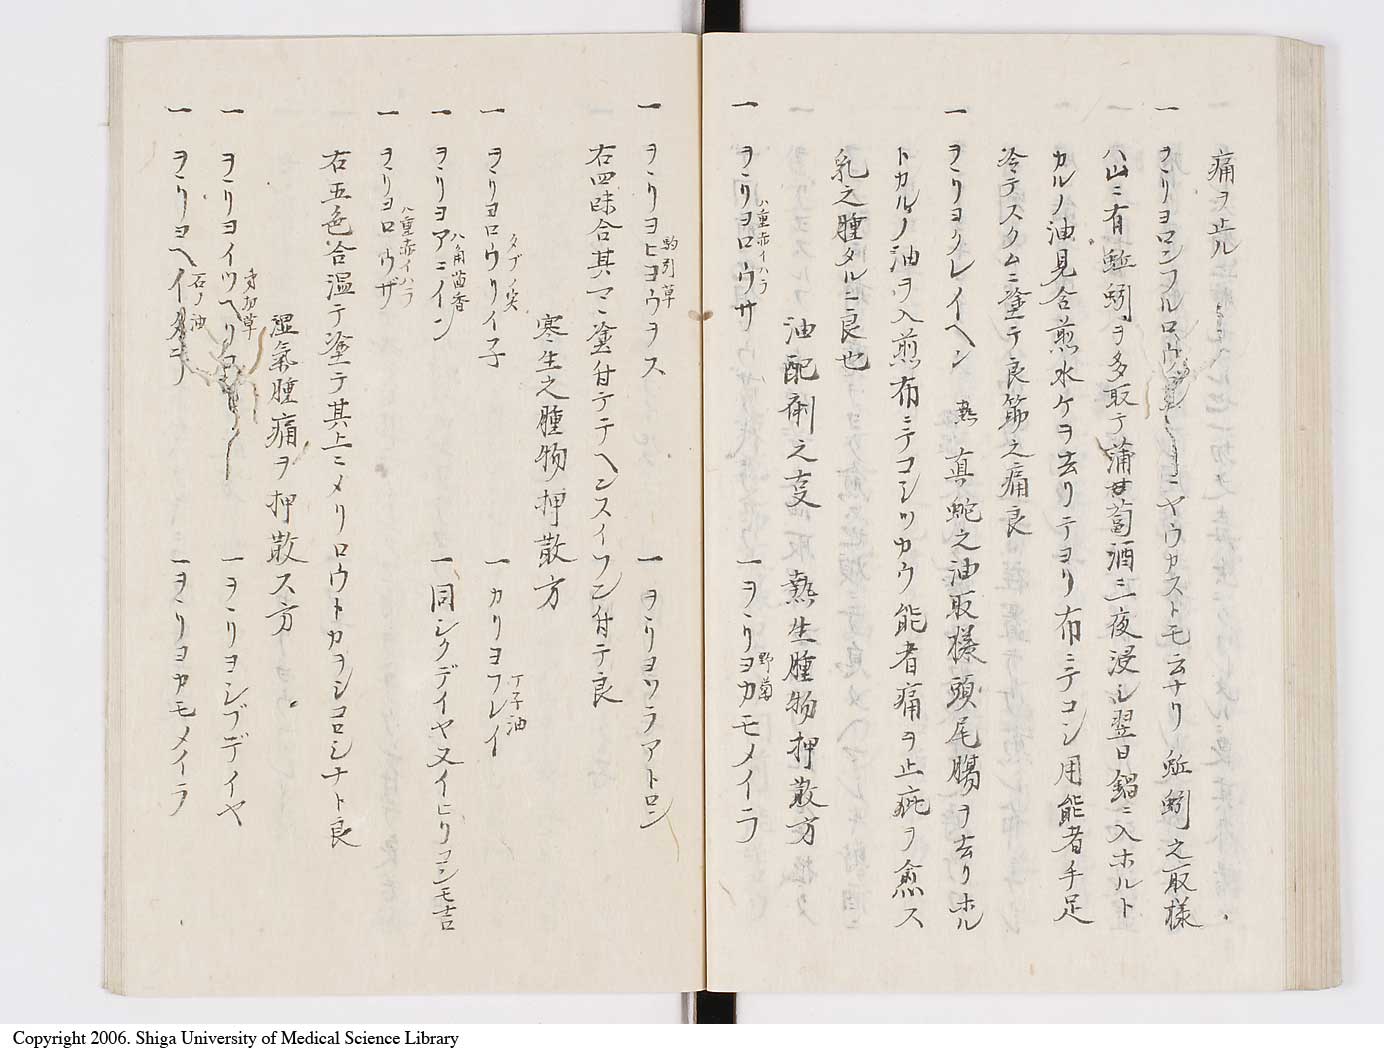 痛ヲ止ル
一 ヲヽリヨロンフルロウ ニヤウカストモ云ナリ 蚯蚓之取様
ハ山ニ有蚯蚓ヲ多取テ蒲萄酒三夜浸シ翌日鍋ニ入ホルト
カルノ油見合煎水ケヲ去リテヨリ布ニテコシ用能者手足
冷テスクムニ塗テ良筋之痛良
一 ヲヽリヨクレイヘン 熱 真蛇之油取様頭尾腸ヲ去リホル
トカルノ油ヲ入煎布ニテコシツカウ能者痛ヲ止疵ヲ愈ス
乳之腫タルニ良也
油配剤之叓 熱生腫物押散方
一 ヲヽリヨロウサ 八重赤イハラ 一ヲヽリヨカモメイラ 野菊
一 ヲヽリヨヒヨウヲス 駒引草 一ヲヽリヨツラアトロン
右四味合其マヽ塗付テテヘンスイフン付テ良
寒生之腫物押散方
一 ヲヽリヨロウリイ子 タブノ実 一カリヨフレイ 丁子油
一 ヲヽリヨアニイン 八角茴香 一同シクデイヤ又イヒリコンモ吉
一 ヲヽリヨロウザ 八重赤イハラ
右五色合温テ塗テ其上ニメリロウトカヲシコロシナト良
湿氣腫痛ヲ押散ス方
一 ヲヽリヨイツヘリ 一ヲヽリヨシブデイヤ
一 ヲヽリヨヘイタラ 石ノ油 一ヲヽリヨカモメイラ
Copyright 2006. Shiga University of Medical Science Library